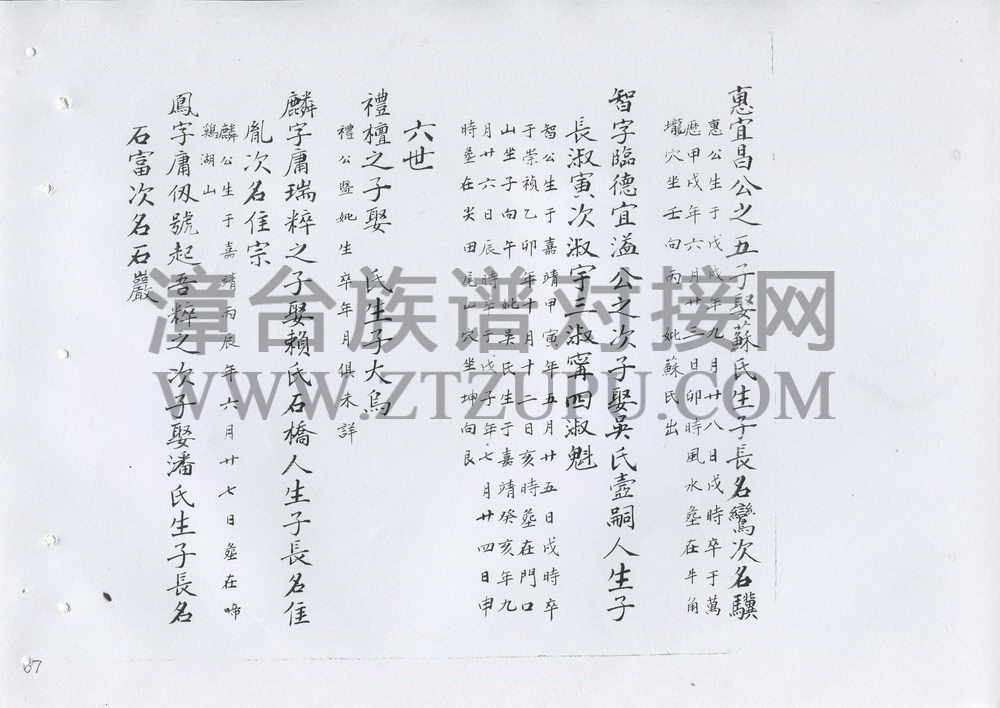 惠宜昌公之五子娶蘇氏生子長名鸞次名驥
惠公生于戊戌年九月廿八日戌時卒于萬
歷甲戌年六月廿三日卯時風水塟在牛角
壠穴坐壬向丙 妣蘇氏出
智字臨德宜溢公之次子娶吳氏壺嗣人生子
長淑寅次淑宇三淑寗四淑魁
智公生于嘉靖甲寅年五月廿五日戌時卒
于崇禎乙卯年十月十二日亥時塟在門口
山坐子向午 妣吳氏生于嘉靖癸亥年九
月廿六日辰時卒于戊子年七月廿四日申
時塟在尖田尾山穴坐坤向艮
六世
禮檀之子娶 氏生子大烏
禮公暨妣生卒年月俱未詳
麟字庸瑞粹之子娶賴氏石橋人生子長名隹
胤次名隹宗
麟公生于嘉靖丙辰年六月廿七日塟在啼
鷄湖山
鳳字庸仭號起吾粹之次子娶潘氏生子長名
石富次名石巖
漳台族谱对接网
WWW.ZTZUPU.COM
07